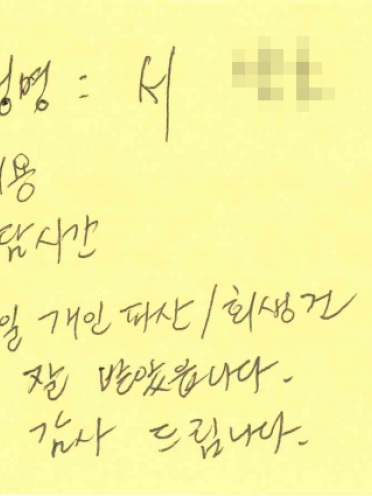 성명 : 서
내용
담시간
일 개인 파산/회생건
잘 받았읍니다.
감사 드립니다.